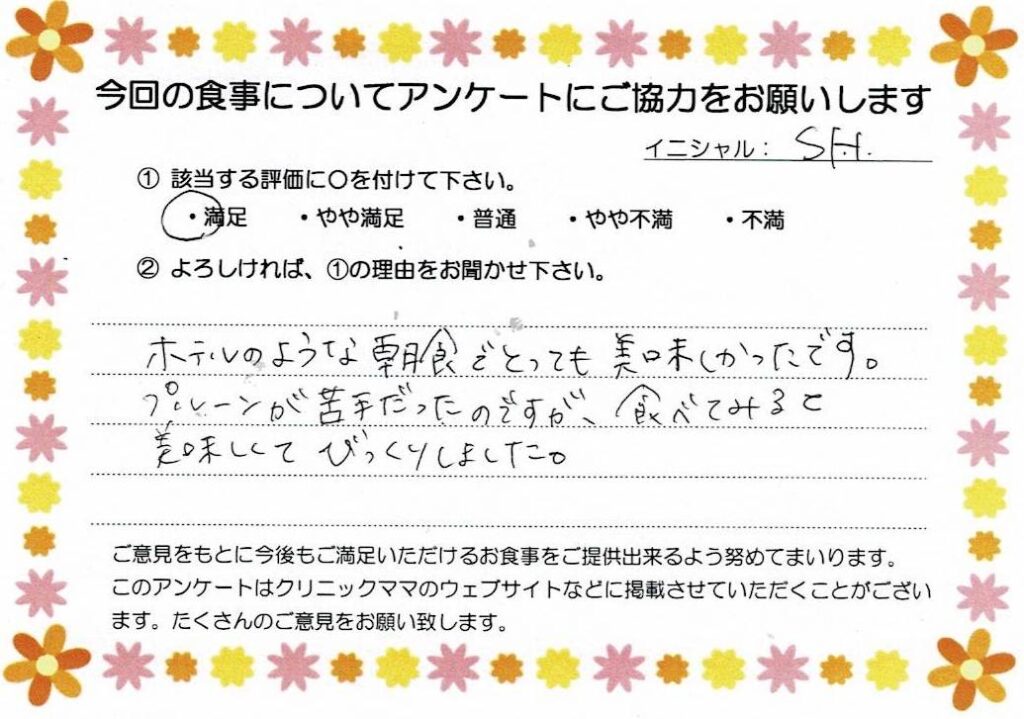 今回の食事についてアンケートにご協力をお願いします
イニシャル： S.H.
① 該当する評価に〇を付けて下さい。
・満足 ・やや満足 ・普通 ・やや不満 ・不満
② よろしければ、①の理由をお聞かせ下さい。
ホテルのような朝食でとっても美味しかったです。
プルーンが苦手だったのですが、食べてみると
美味しくてびっくりしました。
ご意見をもとに今後もご満足いただけるお食事をご提供出来るよう努めてまいります。
このアンケートはクリニックママのウェブサイトなどに掲載させていただくことがござい
ます。たくさんのご意見をお願い致します。